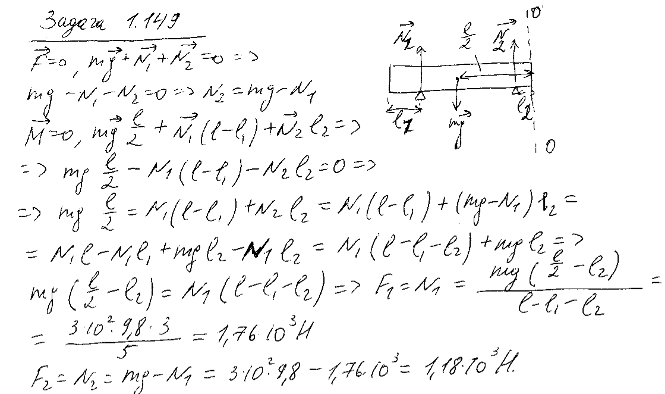 Задача 1.149
F⃗=0, mg⃗+N⃗₁+N⃗₂=0 =>
mg-N₁-N₂=0 => N₂=mg-N₁
M⃗=0, mg⃗ l/2 + N⃗₁(l-l₁)+N⃗₂l₂ =>
=> mg l/2 - N₁(l-l₁)-N₂l₂=0 =>
=> mg l/2 = N₁(l-l₁)+N₂l₂ = N₁(l-l₁)+(mg-N₁)l₂ =
= N₁l-N₁l₁+mgl₂-N₁l₂ = N₁(l-l₁-l₂)+mgl₂ =>
mg(l/2-l₂)=N₁(l-l₁-l₂) => F₁=N₁= mg(l/2-l₂)/(l-l₁-l₂) =
= 3·10²·9,8·3/5 = 1,76·10³Н
F₂=N₂=mg-N₁=3·10²·9,8-1,76·10³=1,18·10³Н.
O
N⃗₁
l/2
N⃗₂
l₁
mg⃗
l₂
O